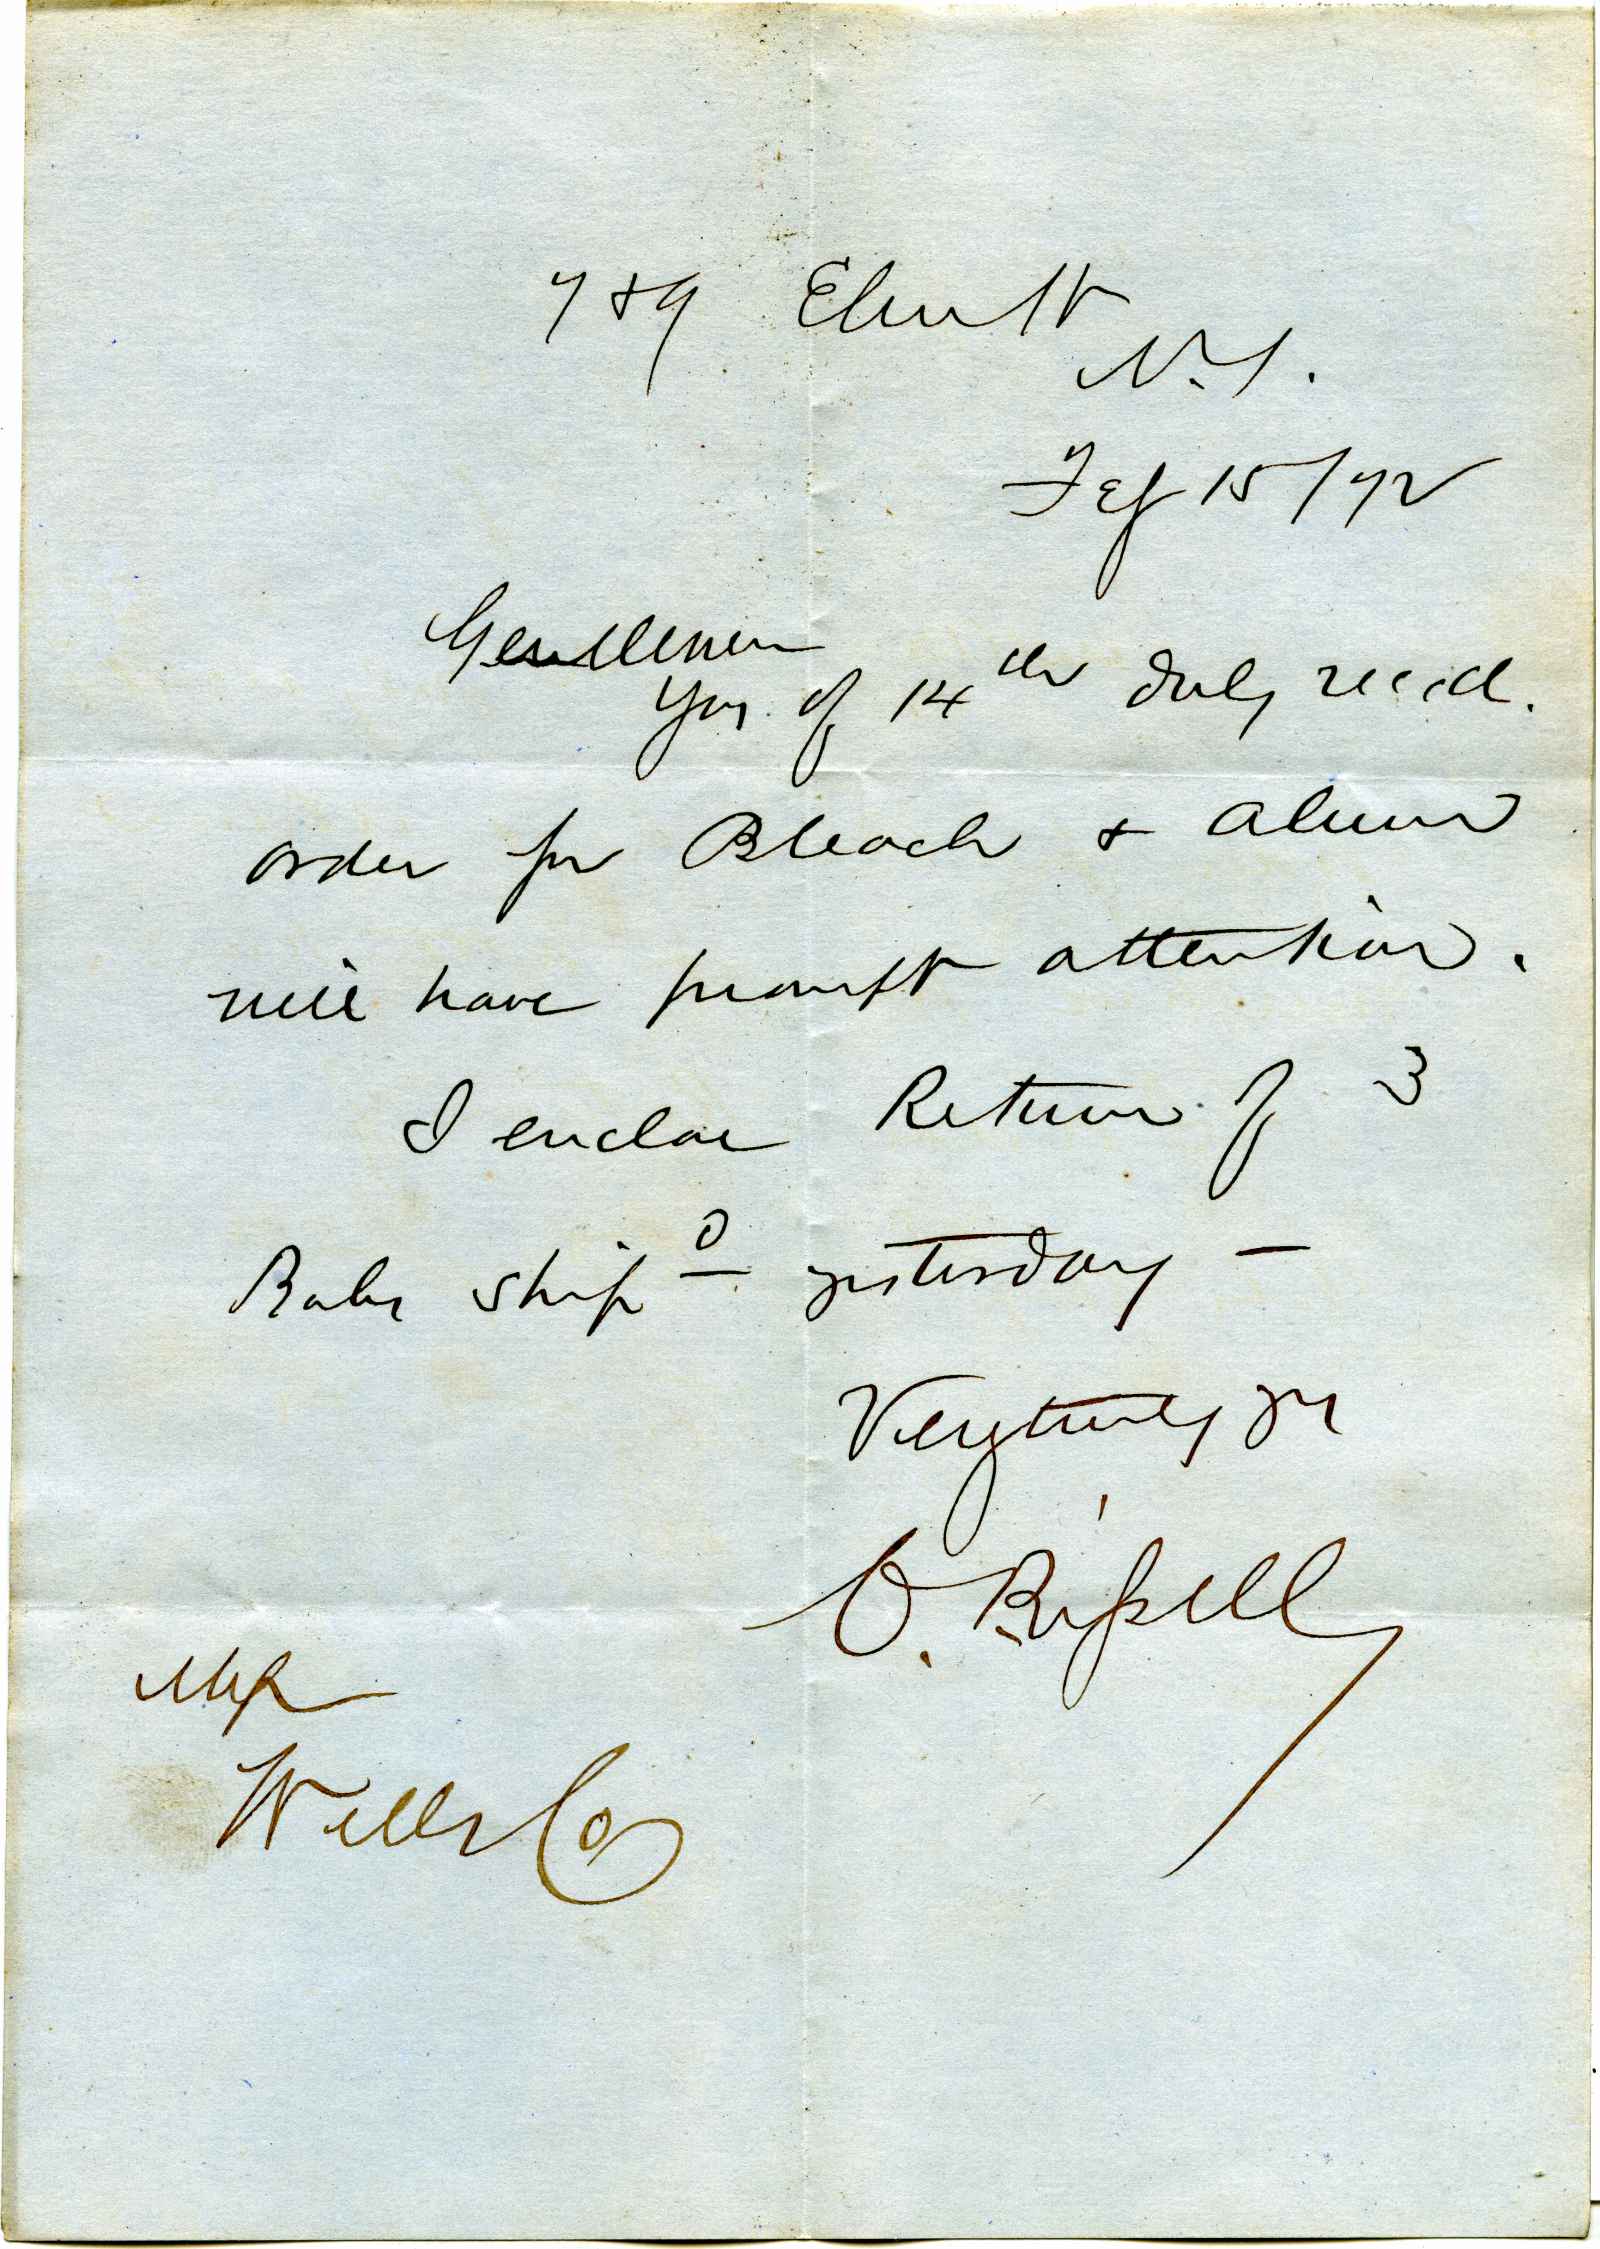 7 & 9 Elm St
N.Y.
Feb 15/72
Gentlemen
Yrs. of 14th duly recd.
order for Bleach & Alum
will have prompt attention.
I enclose Return of 3
Bales ship d yesterday —
Very truly yrs
O. Bissell
Wells Co